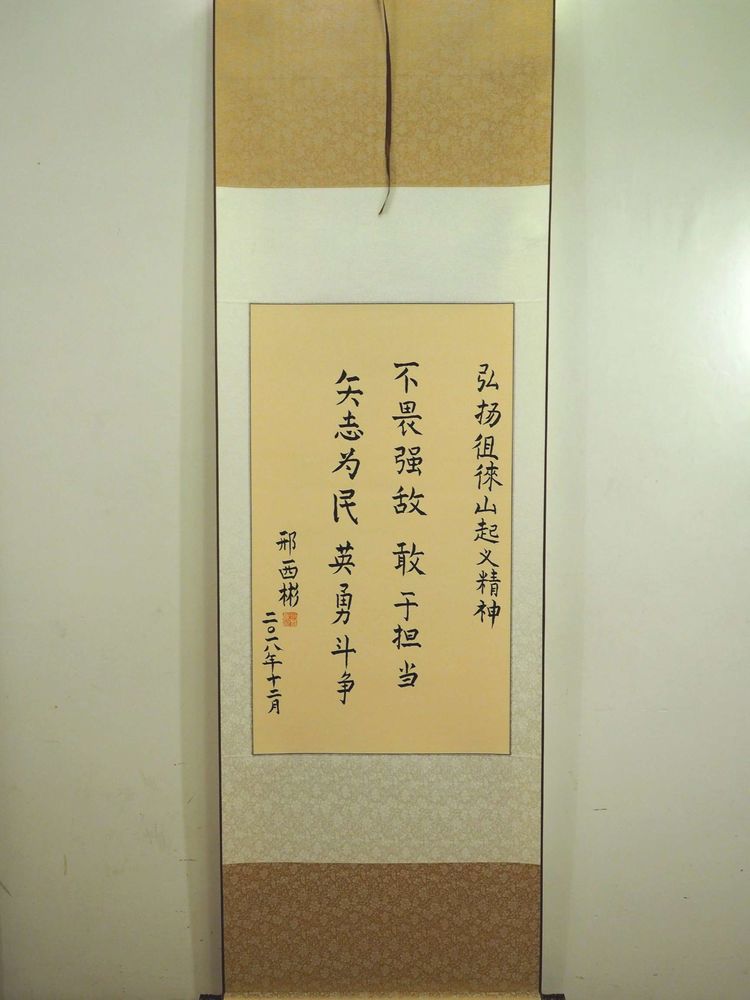 弘扬徂徕山起义精神
不畏强敌 敢于担当
矢志为民 英勇斗争
邢西彬
二〇一八年十二月